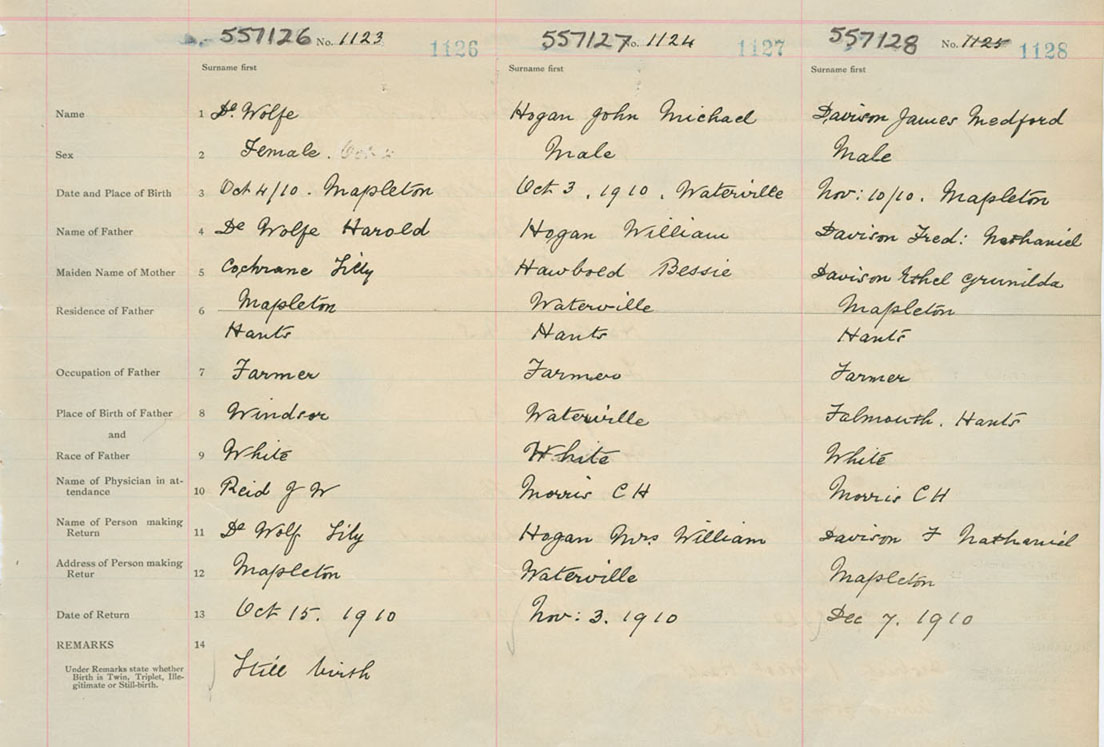 557126 No. 1123 1126 557127 No. 1124 1127 557128 No. 1125 1128
Surname first Surname first Surname first
Name 1 De Wolfe Hogan John Michael Davison James Medford
Sex 2 Female. Male Male
Date and Place of Birth 3 Oct 4/10. Mapleton Oct 3, 1910. Waterville Nov: 10/10. Mapleton
Name of Father 4 De Wolfe Harold Hogan William Davison Fred: Nathaniel
Maiden Name of Mother 5 Cochrane Lilly Hawbold Bessie Davison Ethel Grunilda
Residence of Father 6 Mapleton Waterville Mapleton
Hants Hants Hants
Occupation of Father 7 Farmer Farmer Farmer
Place of Birth of Father 8 Windsor Waterville Falmouth. Hants
and
Race of Father 9 White White White
Name of Physician in at-
tendance 10 Reid J W Morris C H Morris C H
Name of Person making
Return 11 De Wolf Lily Hogan Mrs William Davison F Nathaniel
Address of Person making
Retur 12 Mapleton Waterville Mapleton
Date of Return 13 Oct 15. 1910 Nov: 3. 1910 Dec 7. 1910
REMARKS 14
Under Remarks state whether
Birth is Twin, Triplet, Ille-
gitimate or Still-birth.
Still birth